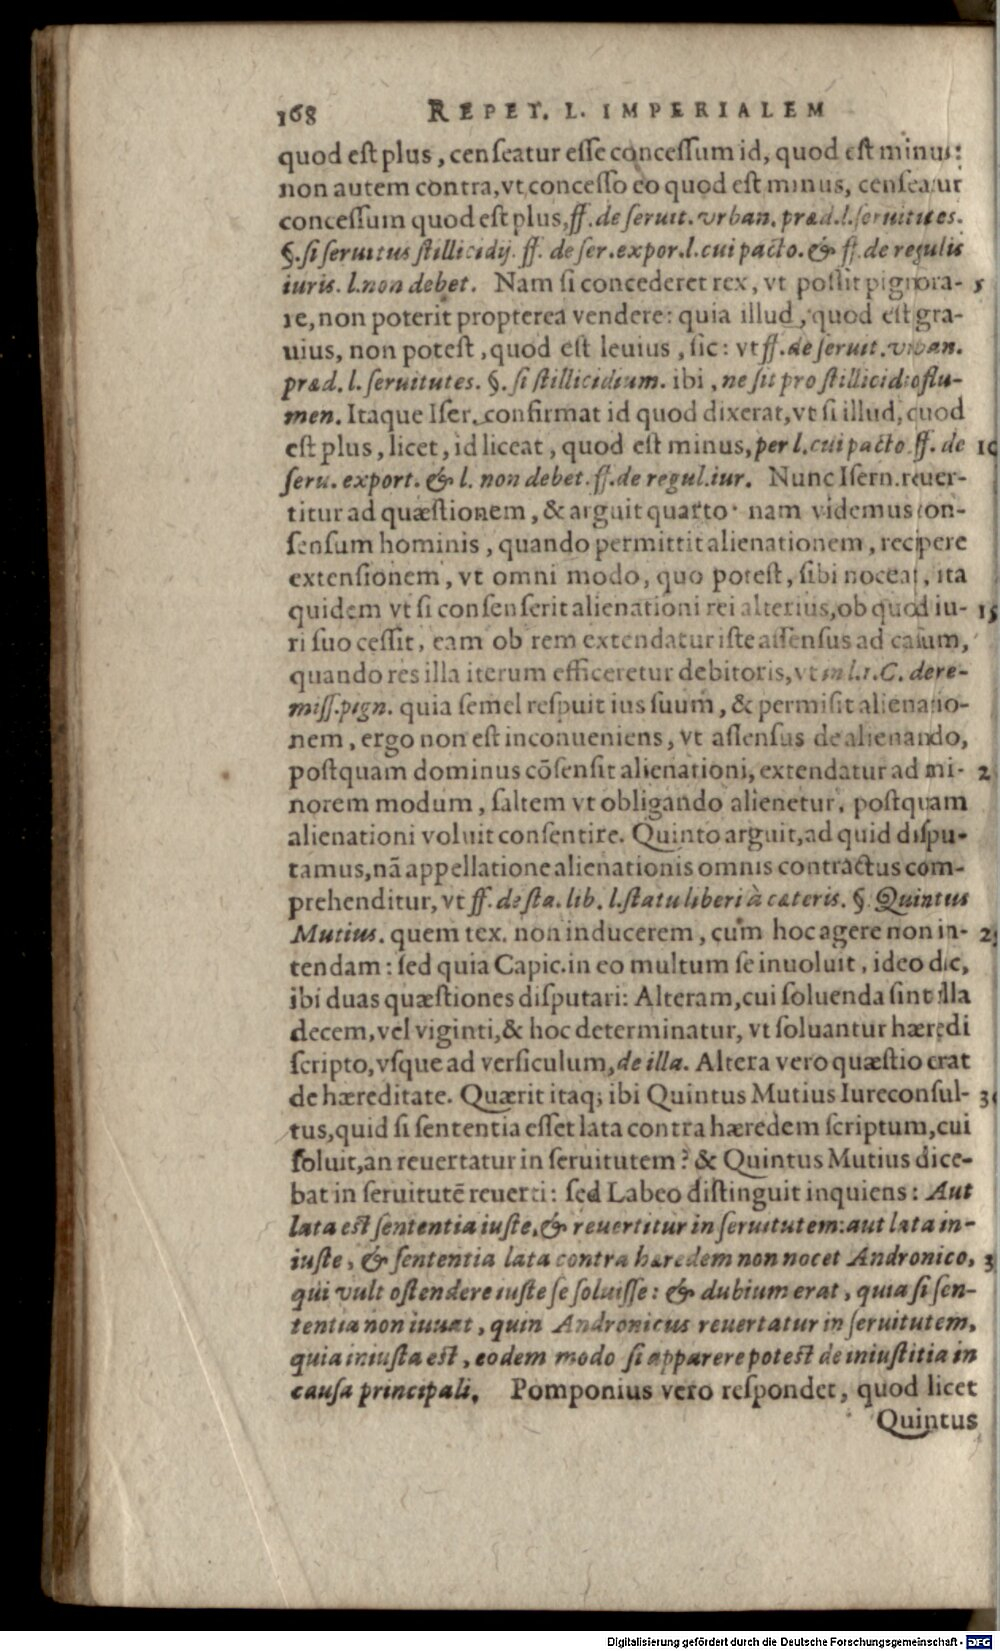 168 REPET. L. IMPERIALEM
quod est plus, censeatur esse concessum id, quod est minus:
non autem contra, vt concesso eo quod est minus, censeatur
concessum quod est plus, ff. de seruit. vrban. præd. l. seruitutes.
§. si seruitus stillicidij. ff. de ser. expor. l. cui pacto. & ff. de regulis
iuris. l. non debet. Nam si concederet rex, vt possit pignora- 5
re, non poterit propterea vendere: quia illud, quod est gra-
uius, non potest, quod est leuius, sic: vt ff. de seruit. vrban.
præd. l. seruitutes. §. si stillicidium. ibi, ne sit pro stillicidio flu-
men. Itaque Iser. confirmat id quod dixerat, vt si illud, quod
est plus, licet, id liceat, quod est minus, per l. cui pacto. ff. de 10
seru. export. & l. non debet. ff. de regul. iur. Nunc Isern. reuer-
titur ad quæstionem, & arguit quarto: nam videmus con-
sensum hominis, quando permittit alienationem, recipere
extensionem, vt omni modo, quo potest, sibi noceat, ita
quidem vt si consenserit alienationi rei alterius, ob quod iu- 15
ri suo cessit, eam ob rem extendatur iste assensus ad casum,
quando res illa iterum efficeretur debitoris, vt in l. 1. C. de re-
miss. pign. quia semel respuit ius suum, & permisit alienatio-
nem, ergo non est inconueniens, vt assensus de alienando,
postquam dominus cōsensit alienationi, extendatur ad mi- 2
norem modum, saltem vt obligando alienetur, postquam
alienationi voluit consentire. Quinto arguit, ad quid dispu-
tamus, nā appellatione alienationis omnis contractus com-
prehenditur, vt ff. de sta. lib. l. statuliberi à cæteris. §. Quintus
Mutius. quem tex. non inducerem, cùm hoc agere non in- 2
tendam: sed quia Capic. in eo multum se inuoluit, ideo dic,
ibi duas quæstiones disputari: Alteram, cui soluenda sint illa
decem, vel viginti, & hoc determinatur, vt soluantur hæredi
scripto, vsque ad versiculum, de illa. Altera vero quæstio erat
de hæreditate. Quærit itaq; ibi Quintus Mutius Iureconsul- 3
tus, quid si sententia esset lata contra hæredem scriptum, cui
soluit, an reuertatur in seruitutem? & Quintus Mutius dice-
bat in seruitutē reuerti: sed Labeo distinguit inquiens: Aut
lata est sententia iuste, & reuertitur in seruitutem: aut lata in-
iuste, & sententia lata contra hæredem non nocet Andronico, 3
qui vult ostendere iuste se soluisse: & dubium erat, quia si sen-
tentia non iuuat, quin Andronicus reuertatur in seruitutem,
quia iniusta est, eodem modo si apparere potest de iniustitia in
causa principali. Pomponius vero respondet, quod licet
Quintus
Digitalisierung gefördert durch die Deutsche Forschungsgemeinschaft - DFG